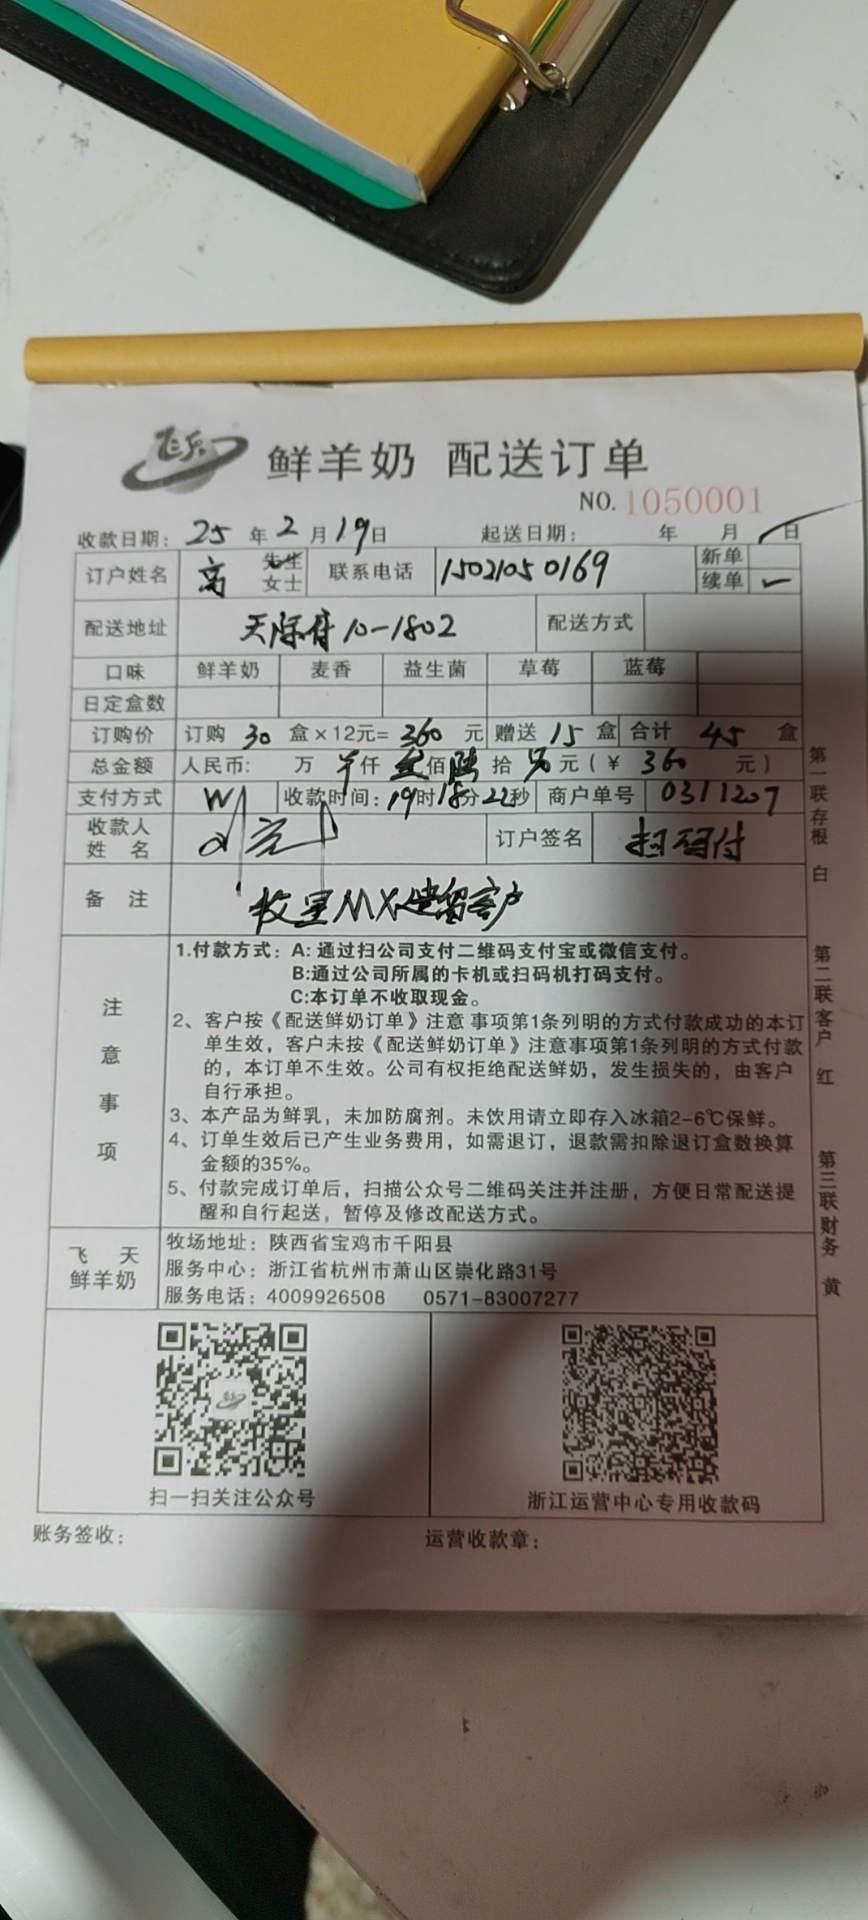 飞天
鲜羊奶 配送订单
NO. 1050001
收款日期: 25 年 2 月 19 日 起送日期: 年 月 日
订户姓名 高 先生 女士 联系电话 15021050169 新单 续单
配送地址 10-1802 配送方式
口味 鲜羊奶 麦香 益生菌 草莓 蓝莓
日定盒数
订购价 订购 30 盒×12元= 360 元 赠送 15 盒 合计 45 盒
总金额 人民币: 万 仟 叁佰 陆 拾 元 (¥ 360 元)
支付方式 W 收款时间: 19时18分22秒 商户单号 0311207
收款人 姓 名 订户签名 扫码付
备 注 客户
注意事项
1.付款方式: A: 通过扫公司支付二维码支付宝或微信支付。
B:通过公司所属的卡机或扫码机打码支付。
C:本订单不收取现金。
2、客户按《配送鲜奶订单》注意 事项第1条列明的方式付款成功的本订
单生效，客户未按《配送鲜奶订单》注意事项第1条列明的方式付款
的，本订单不生效。公司有权拒绝配送鲜奶，发生损失的，由客户
自行承担。
3、本产品为鲜乳，未加防腐剂。未饮用请立即存入冰箱2-6℃保鲜。
4、订单生效后已产生业务费用，如需退订，退款需扣除退订盒数换算
金额的35%。
5、付款完成订单后，扫描公众号二维码关注并注册，方便日常配送提
醒和自行起送，暂停及修改配送方式。
飞 天
鲜羊奶
牧场地址: 陕西省宝鸡市千阳县
服务中心: 浙江省杭州市萧山区崇化路31号
服务电话: 4009926508 0571-83007277
扫一扫关注公众号
浙江运营中心专用收款码
账务签收: 运营收款章:
第一联存根 白
第二联客户 红
第三联财务 黄